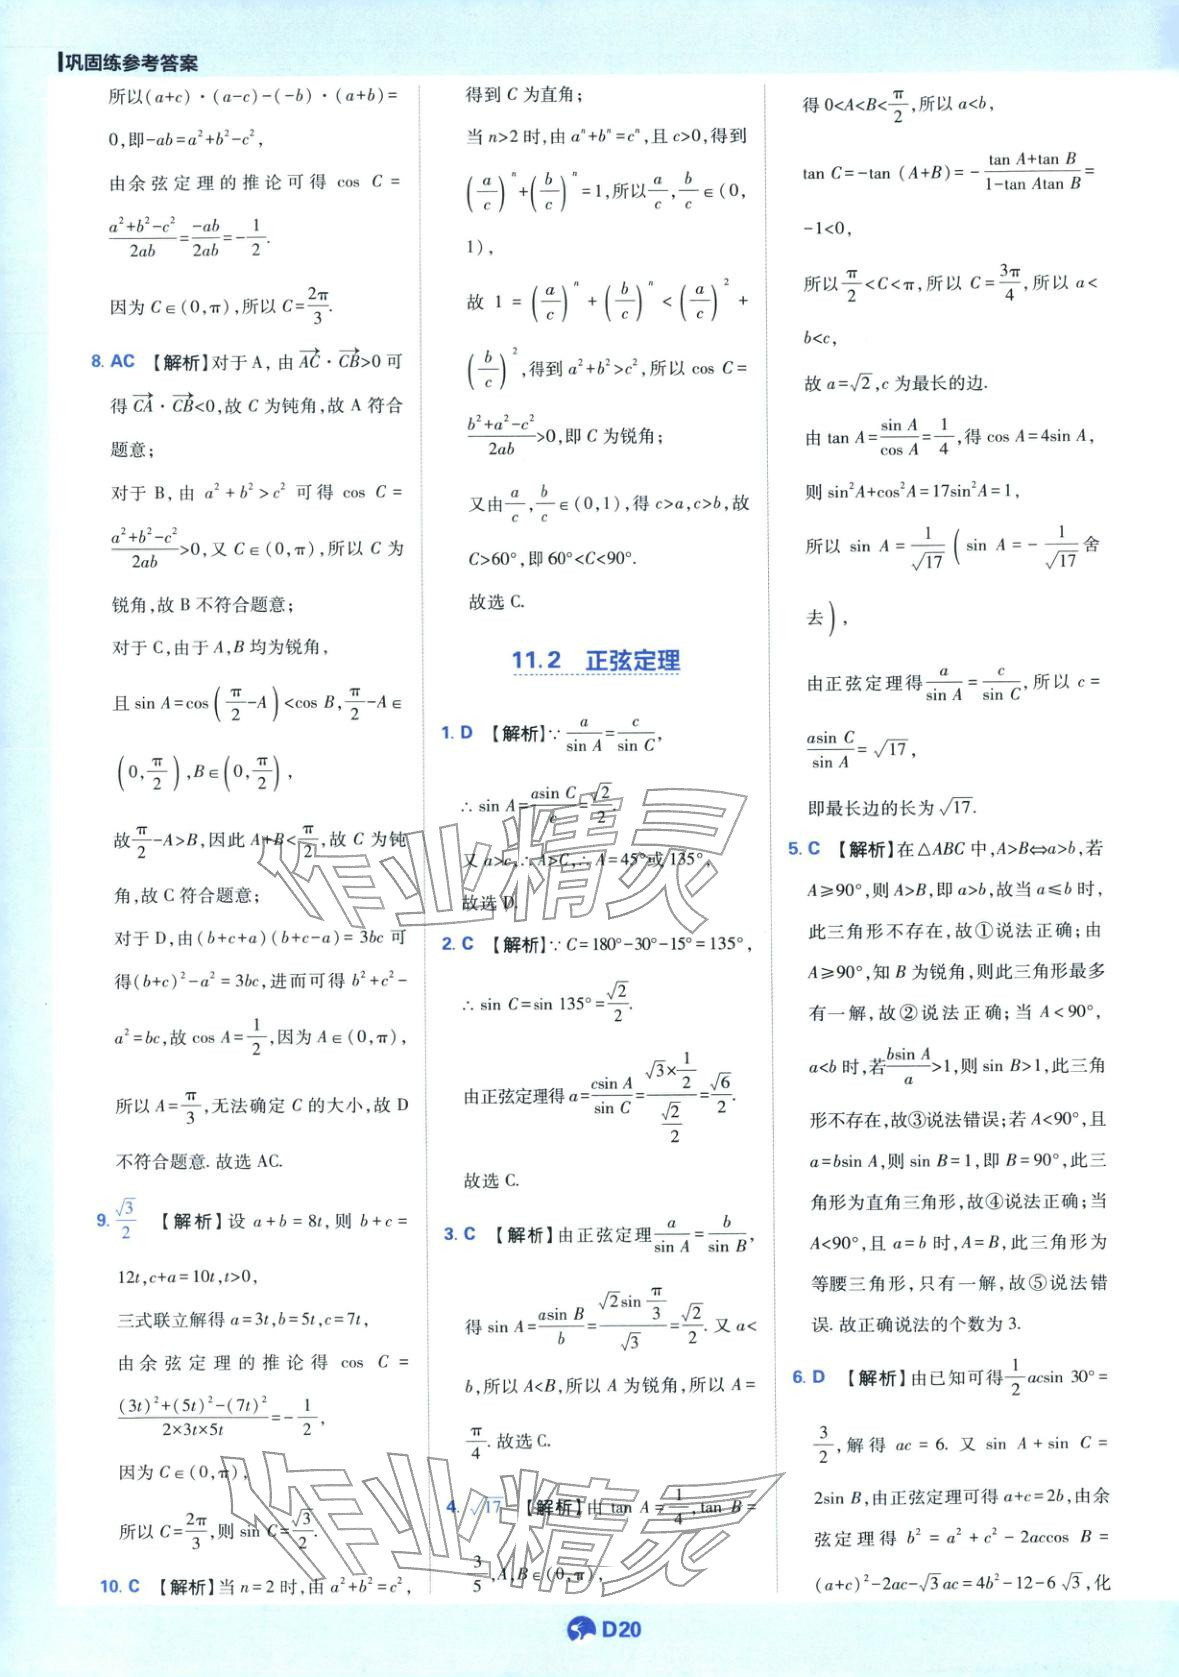 巩固练参考答案
所以(a+c)·(a-c)-(-b)·(a+b)=
0,即-ab=a²+b²-c²,
由余弦定理的推论可得 cos C=
(a²+b²-c²)/2ab=-ab/2ab=-1/2.
因为 C∈(0,π),所以 C=2π/3.
8. AC 【解析】对于 A, 由 AC·CB>0 可
得 CA·CB<0,故 C 为钝角,故 A 符合
题意;
对于 B, 由 a²+b²>c² 可得 cos C=
(a²+b²-c²)/2ab>0,又 C∈(0,π),所以 C 为
锐角,故 B 不符合题意;
对于 C,由于 A,B 均为锐角,
且 sin A=cos(π/2-A)<cos B,π/2-A∈
(0,π/2),B∈(0,π/2),
故π/2-A>B,因此 A+B<π/2,故 C 为钝
角,故 C 符合题意;
对于 D,由(b+c+a)(b+c-a)=3bc 可
得(b+c)²-a²=3bc,进而可得 b²+c²-
a²=bc,故 cos A=1/2,因为 A∈(0,π),
所以 A=π/3,无法确定 C 的大小,故 D
不符合题意. 故选 AC.
9. √3/2 【解析】设 a+b=8t,则 b+c=
12t,c+a=10t,t>0,
三式联立解得 a=3t,b=5t,c=7t,
由余弦定理的推论得 cos C=
((3t)²+(5t)²-(7t)²)/(2×3t×5t)=-1/2,
因为 C∈(0,π),
所以 C=2π/3,则 sin C=√3/2.
10. C 【解析】当 n=2 时,由 a²+b²=c²,
得到 C 为直角;
当 n>2 时,由 aⁿ+bⁿ=cⁿ,且 c>0,得到
(a/c)ⁿ+(b/c)ⁿ=1,所以a/c,b/c∈(0,
1),
故 1=(a/c)ⁿ+(b/c)ⁿ<(a/c)²+
(b/c)²,得到 a²+b²>c²,所以 cos C=
(b²+a²-c²)/2ab>0,即 C 为锐角;
又由a/c,b/c∈(0,1),得 c>a,c>b,故
C>60°,即 60°<C<90°.
故选 C.
11.2 正弦定理
1. D 【解析】∵a/sin A=c/sin C,
∴sin A=asin C/c=√2/2.
又 a>c,∴A>C,∴A=45°或 135°,
故选 D.
2. C 【解析】∵C=180°-30°-15°=135°,
∴sin C=sin 135°=√2/2.
由正弦定理得 a=csin A/sin C=(√3×1/2)/(√2/2)=√6/2.
故选 C.
3. C 【解析】由正弦定理a/sin A=b/sin B,
得 sin A=asin B/b=(√2sin π/3)/√3=√2/2. 又 a<
b,所以 A<B,所以 A 为锐角,所以 A=
π/4. 故选 C.
4. √17 【解析】由 tan A=1/4,tan B=
3/5,A,B∈(0,π),
得 0<A<B<π/2,所以 a<b,
tan C=-tan (A+B)=-(tan A+tan B)/(1-tan Atan B)=
-1<0,
所以π/2<C<π,所以 C=3π/4,所以 a<
b<c,
故 a=√2,c 为最长的边.
由 tan A=sin A/cos A=1/4,得 cos A=4sin A,
则 sin²A+cos²A=17sin²A=1,
所以 sin A=1/√17(sin A=-1/√17舍
去),
由正弦定理得a/sin A=c/sin C,所以 c=
asin C/sin A=√17,
即最长边的长为√17.
5. C 【解析】在△ABC 中,A>B⇔a>b,若
A≥90°,则 A>B,即 a>b,故当 a≤b 时,
此三角形不存在,故①说法正确;由
A≥90°,知 B 为锐角,则此三角形最多
有一解,故②说法正确;当 A<90°,
a<b 时,若bsin A/a>1,则 sin B>1,此三角
形不存在,故③说法错误;若 A<90°,且
a=bsin A,则 sin B=1,即 B=90°,此三
角形为直角三角形,故④说法正确;当
A<90°,且 a=b 时,A=B,此三角形为
等腰三角形,只有一解,故⑤说法错
误. 故正确说法的个数为 3.
6. D 【解析】由已知可得1/2acsin 30°=
3/2,解得 ac=6. 又 sin A+sin C=
2sin B,由正弦定理可得 a+c=2b,由余
弦定理得 b²=a²+c²-2accos B=
(a+c)²-2ac-√3ac=4b²-12-6√3,化
作业精灵
作业精灵
D20